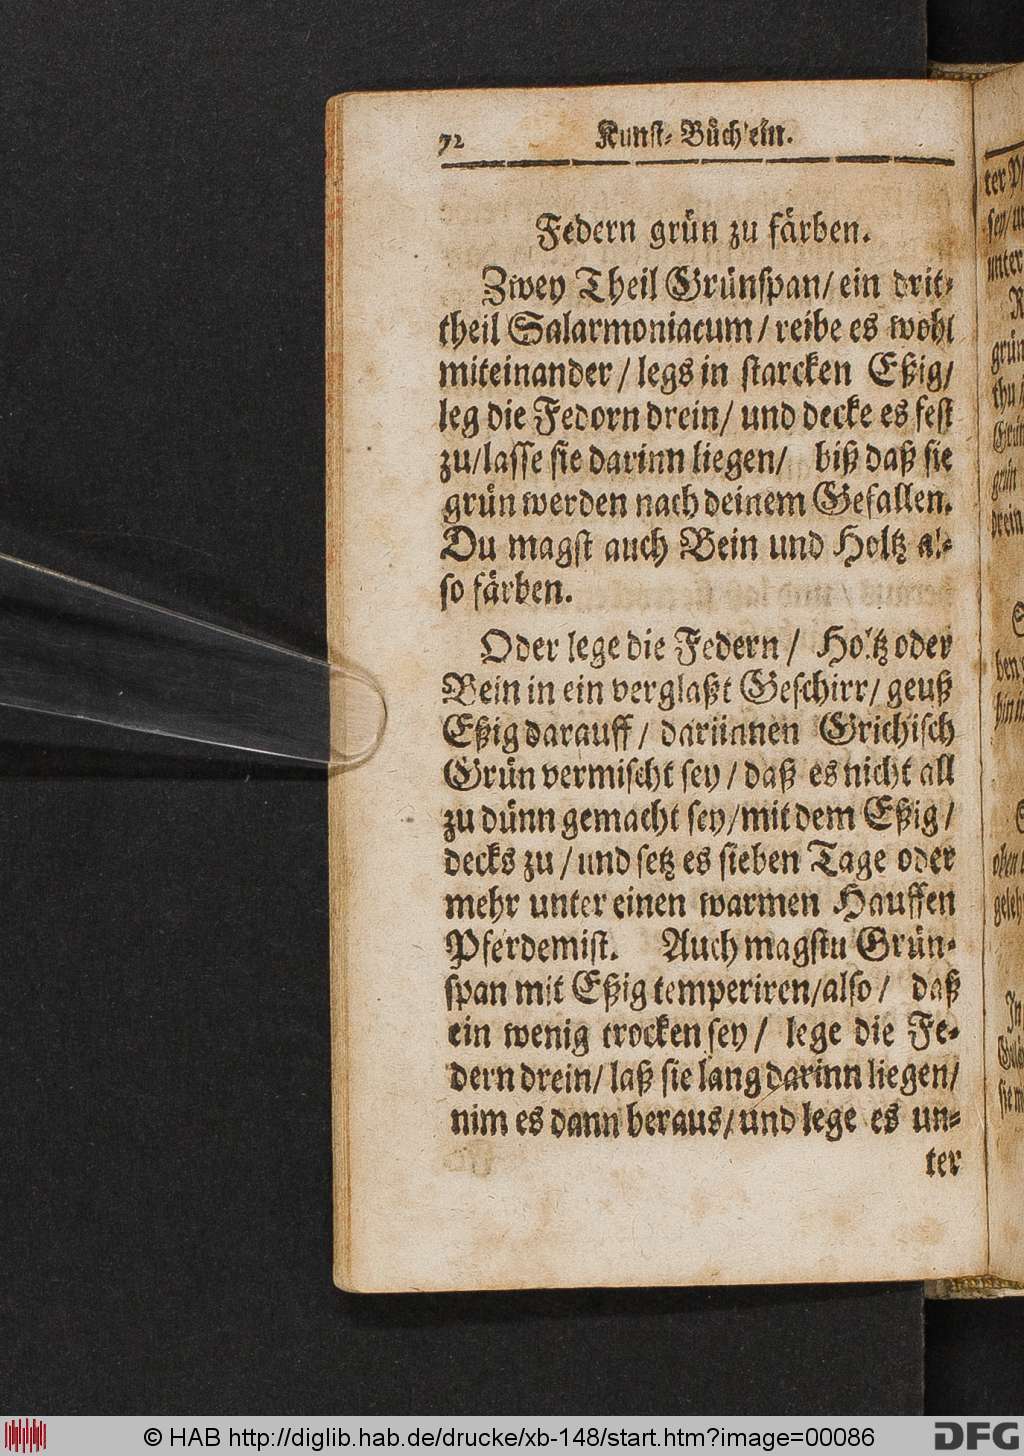 72 Kunst-Büchlein.
Federn grün zu färben.
Zwey Theil Grünspan/ ein drit-
theil Salarmoniacum / reibe es wohl
miteinander / legs in starcken Eßig/
leg die Fedorn drein/ und decke es fest
zu/lasse sie darinn liegen/ biß daß sie
grün werden nach deinem Gefallen.
Du magst auch Bein und Holtz al-
so färben.
Oder lege die Federn / Holtz oder
Bein in ein verglaßt Geschirr/ geuß
Eßig darauff / dariinnen Grichisch
Grün vermischt sey / daß es nicht all
zu dünn gemacht sey/mit dem Eßig/
decks zu / und setz es sieben Tage oder
mehr unter einen warmen Hauffen
Pferdemist. Auch magstu Grün-
span mit Eßig temperiren/also / daß
ein wenig trocken sey / lege die Fe-
dern drein/ laß sie lang darinn liegen/
nim es dann heraus/und lege es un-
ter
© HAB http://diglib.hab.de/drucke/xb-148/start.htm?image=00086
DFG